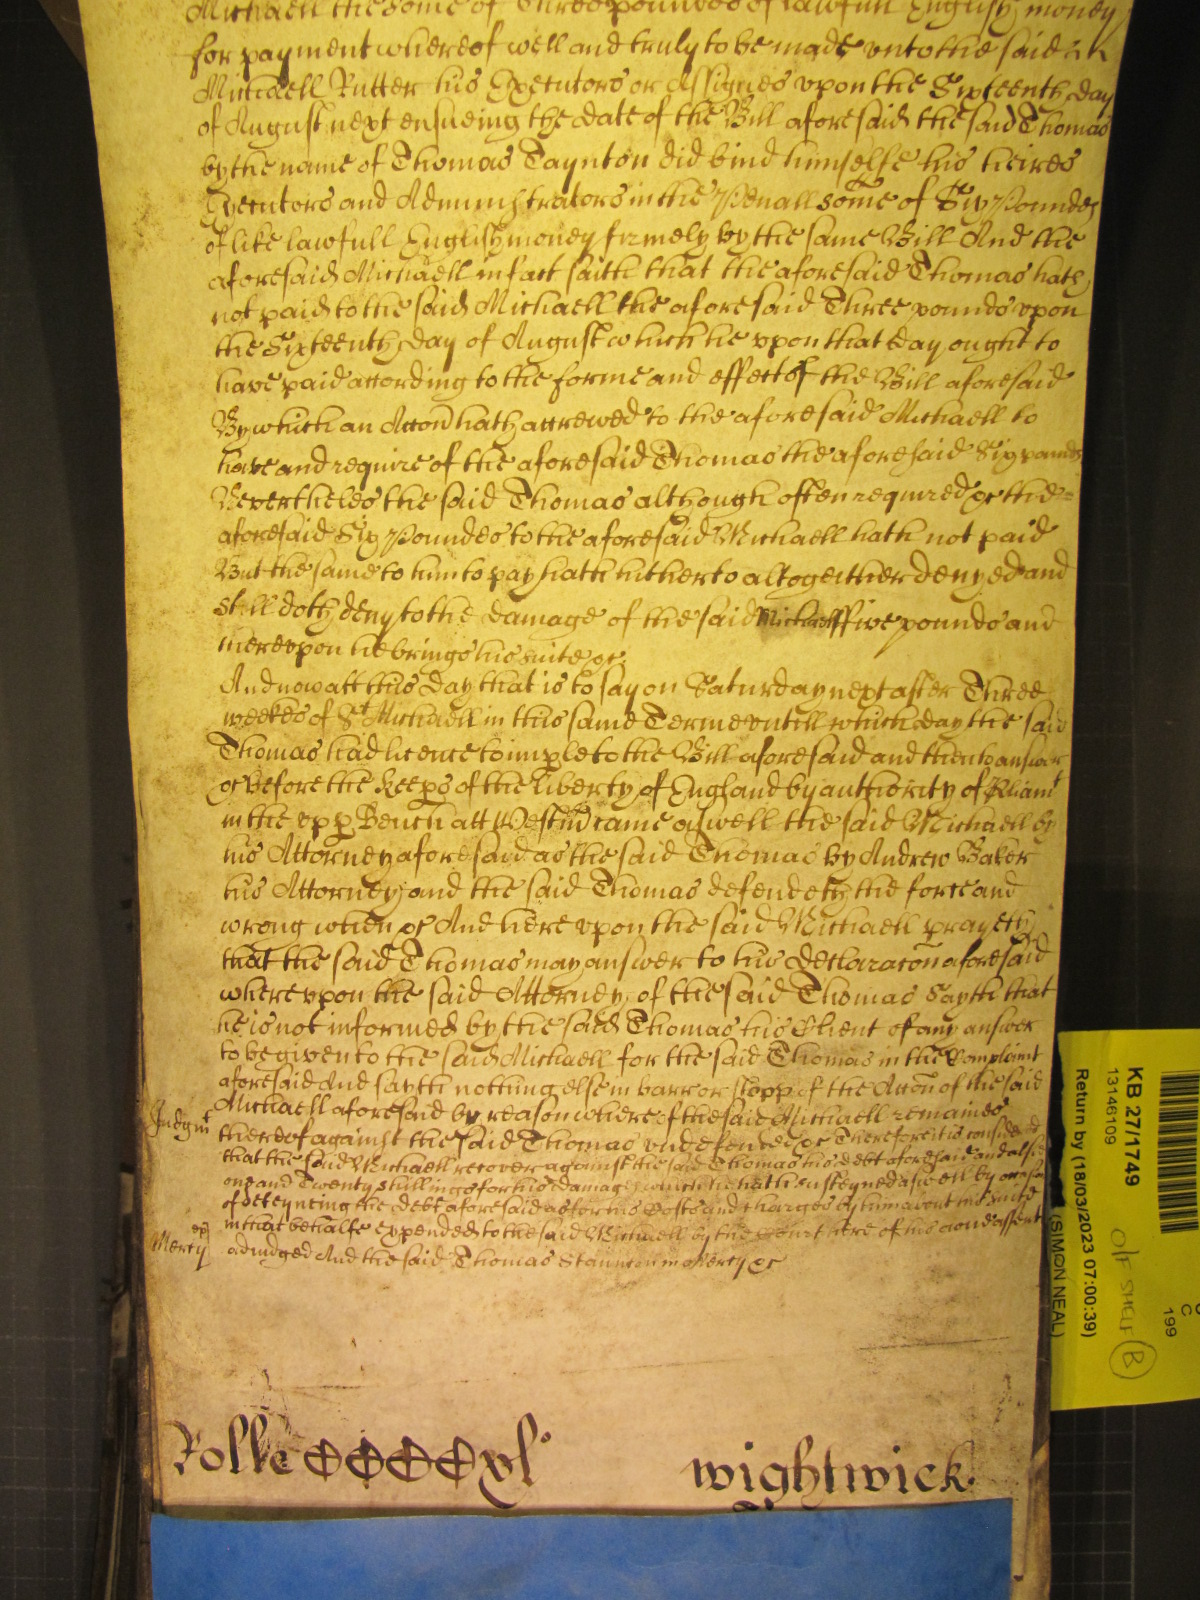 Michaell the some of Three poundes of lawfull English money
for payment whereof well and truly to be made vnto the said
Michaell Rutter his Executors or Assignes vpon the Sixteenth day
of August next ensueing the date of the Bill aforesaid the said Thomas
by the name of Thomas Taynton did bind himselfe his heires
Executors and Administrators in the Penall some of Six Poundes
of like lawfull English money firmely by the same Bill And the
aforesaid Michaell in fact saith that the aforesaid Thomas hath
not paid to the said Michaell the aforesaid Three pounds vpon
the Sixteenth day of August which he vpon that day ought to
have paid according to the forme and effect of the Bill aforesaid
By which an Accon hath accrewed to the aforesaid Michaell to
have and require of the aforesaid Thomas the aforesaid Six pounds
Neverthelesse the said Thomas although often required &c the
aforesaid Six Poundes to the aforesaid Michaell hath not paid
But the same to him to pay hath hitherto altogeither denyed and
still doth deny to the damage of the said Michaell ffive pounds and
thereupon he brings his suite &c.
And now att this day that is to say on Saturday next after Three
weekes of St Michaell in this same Terme vntill which day the said
Thomas had licence to imple to the Bill aforesaid and then to answer
&c before the Keeps of the liberty of England by authority of Pliamt
in the vpp Bench att Westm came aswell the said Michaell by
his Attorney aforesaid as the said Thomas by Andrew Baker
his Attorney and the said Thomas defendeth the force and
wrong when &c And herevpon the said Michaell prayeth
that the said Thomas may answer to his declaracon aforesaid
wherevpon the said Attorney of the said Thomas sayth that
he is not informed by the said Thomas his Client of any answer
to be given to the said Michaell for the said Thomas in the Complaint
aforesaid And sayth nothing else in barr or stopp of the Accon of the said
Michaell aforesaid by reason whereof the said Michaell remaines
Judgmt
thereof against the said Thomas vndefended &c Therefore it is considered
that the said Michaell recover against the said Thomas his debt aforesaid and alsoe
one and Twenty shillings for his damages which he hath susteyned aswell by occasion
of deteyneing the debt aforesaid as for his Costs and charges by him about his suite
in that behalfe expended to the said Michaell by the Court here of his owne assent
Mercy
adiudged And the said Thomas Staunton in Mercy &c
Rolle CCCCxlo
wightwick
KB 27/1749
13146109
Return by (18/03/2023 07:00:39)
(SIMON NEAL)
O/F SHELF B
C
199